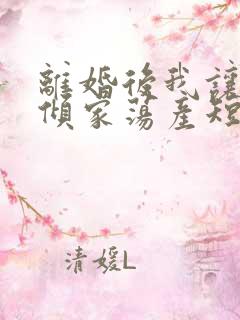 離婚後我讓
傾家蕩產短
清媛L